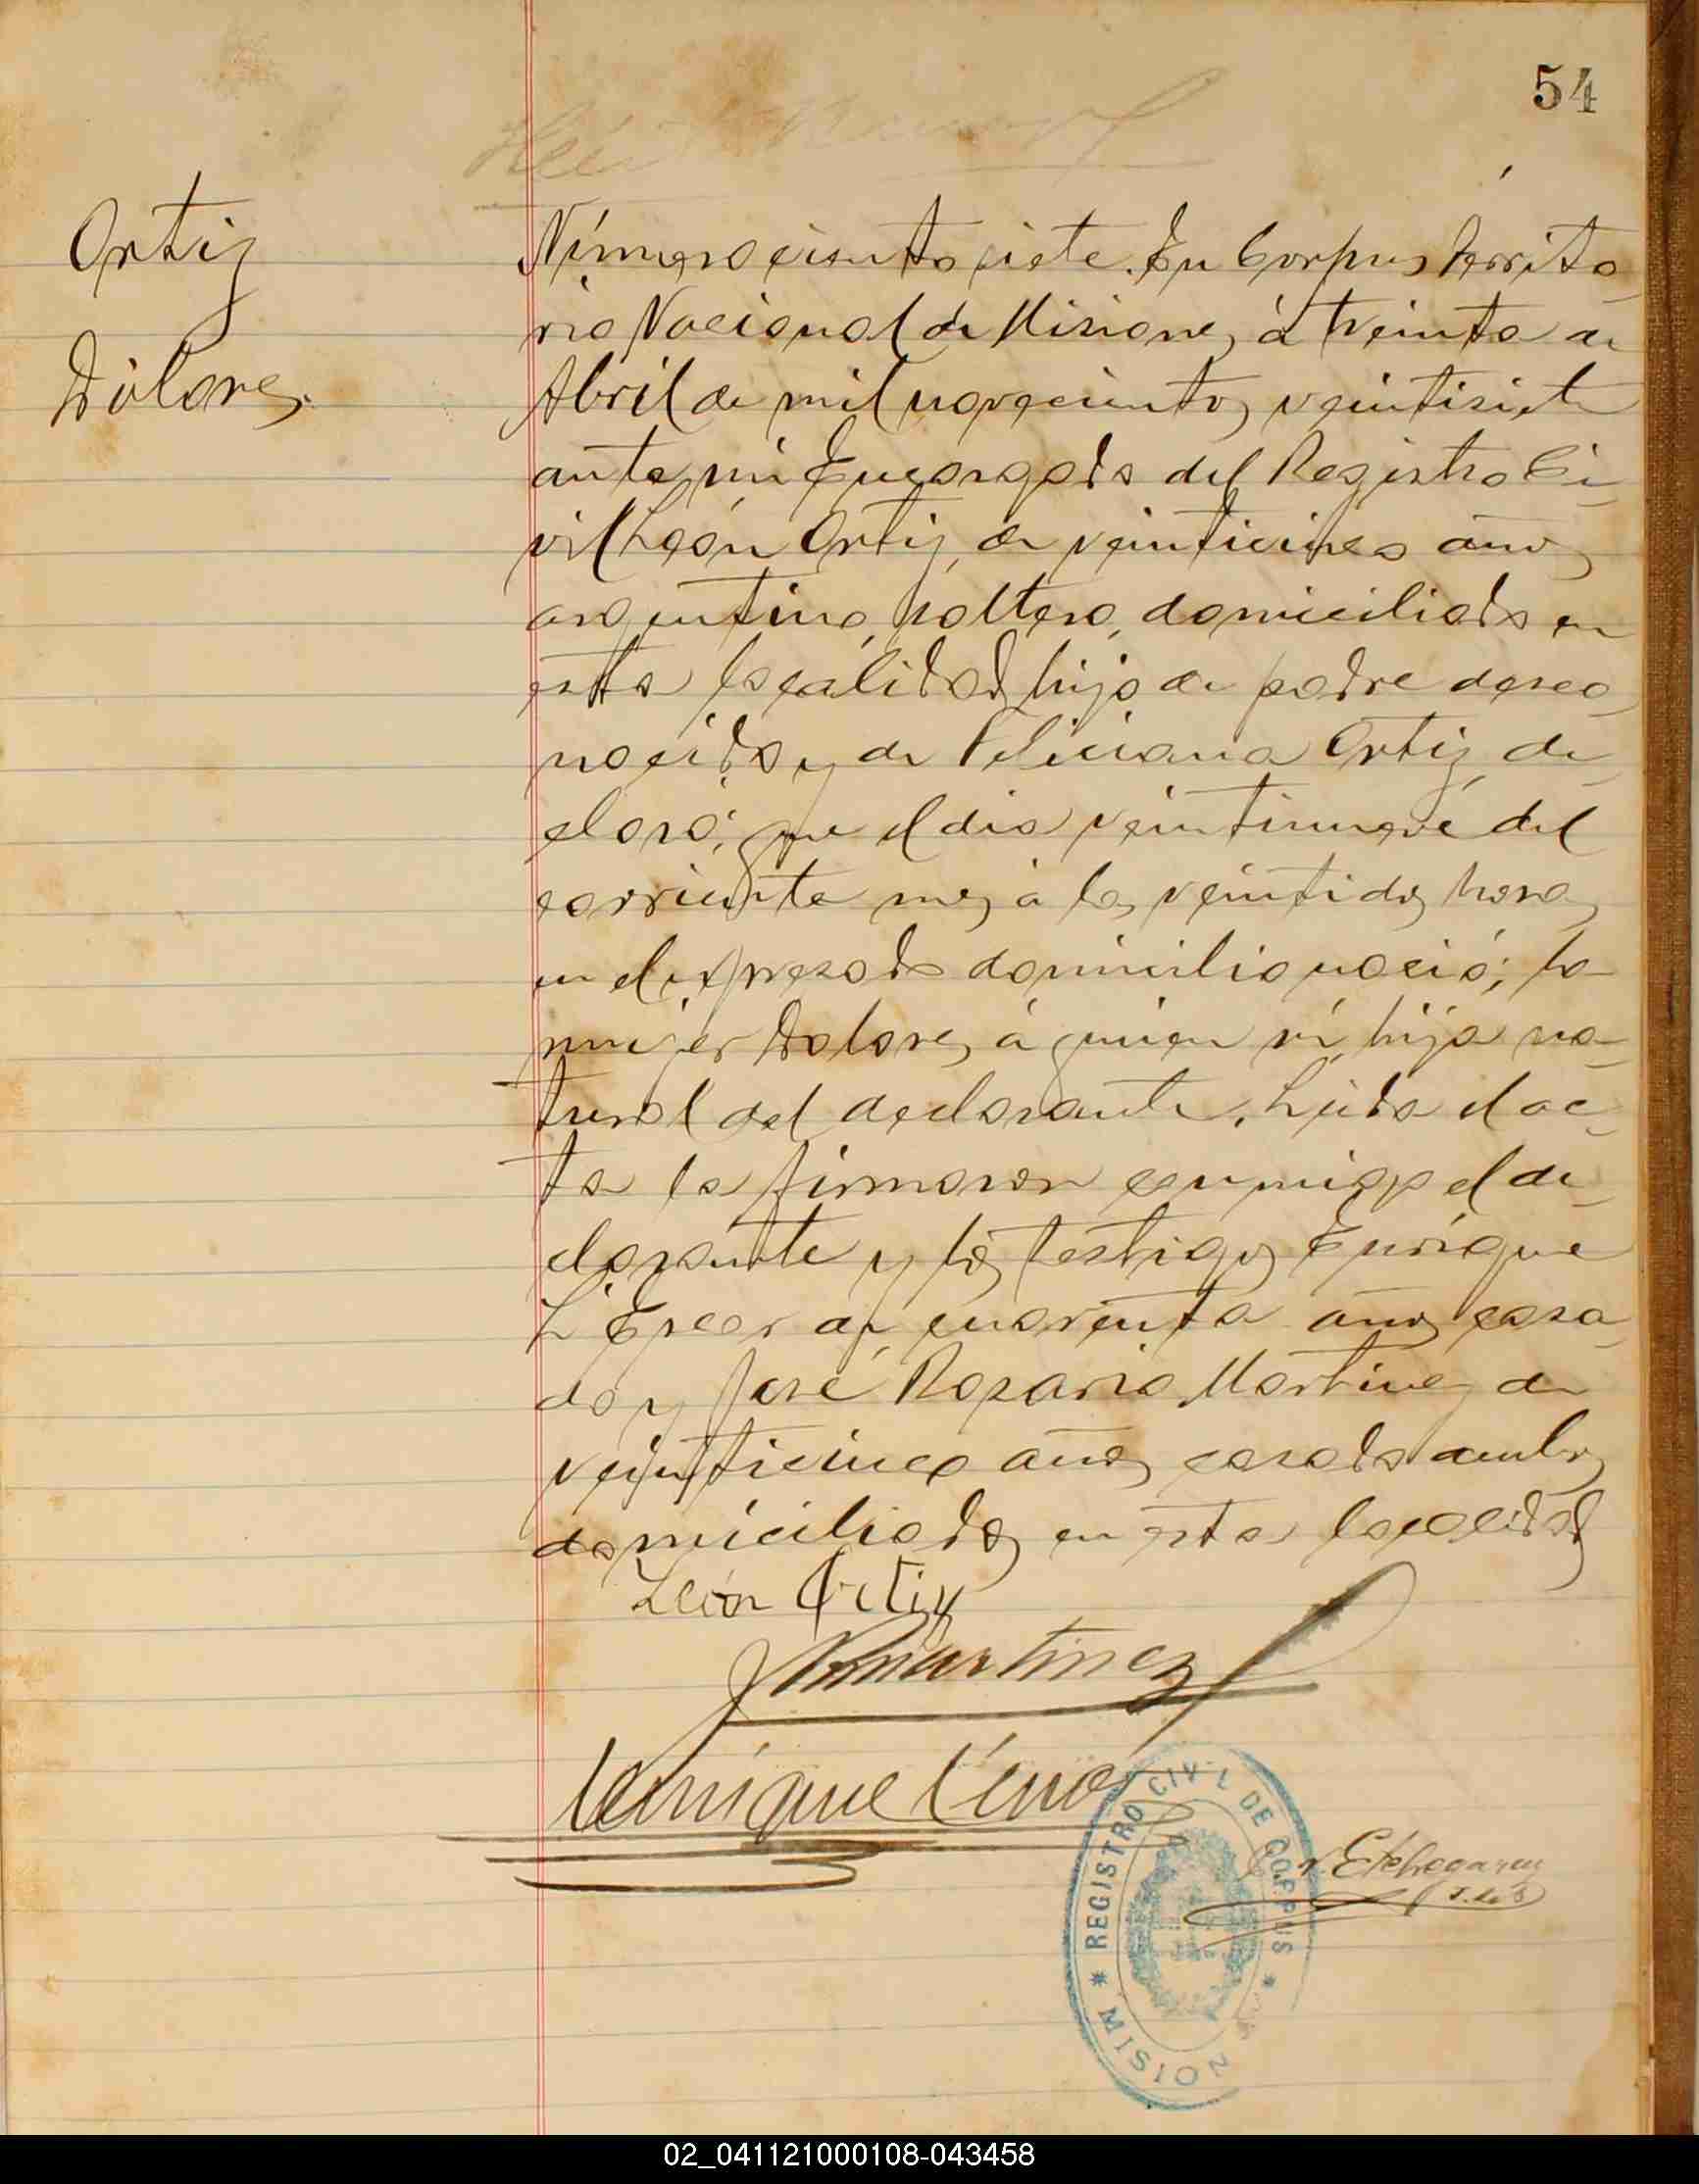 54
Ortiz
Dolores.
Número ciento siete. En Corpus Territo-
rio Nacional de Misiones, á treinta de
Abril de mil novecientos veintisiete
ante mi Encargado del Registro Ci-
vil León Ortiz, de veinticinco años
argentino, soltero, domiciliado en
esta localidad hijo de padre desco-
nocido y de Feliciana Ortiz, de-
claró; que el dia veintinueve del
corriente mes á las veintidos horas
en el expresado domicilio nació; la
mujer Dolores, á quien ví hija na-
tural del declarante. Leida el ac-
ta la firmaron conmigo el de-
clarante y los testigos Enrique
de cuarenta años casa-
do y José Rosario Martinez de
veinticinco años casado ambos
domiciliados en esta localidad
León Ortiz
JRMartinez
Enrique
Etchegaray
J. de P.
REGISTRO CIVIL DE CORPUS
* MISION *
02_041121000108-043458